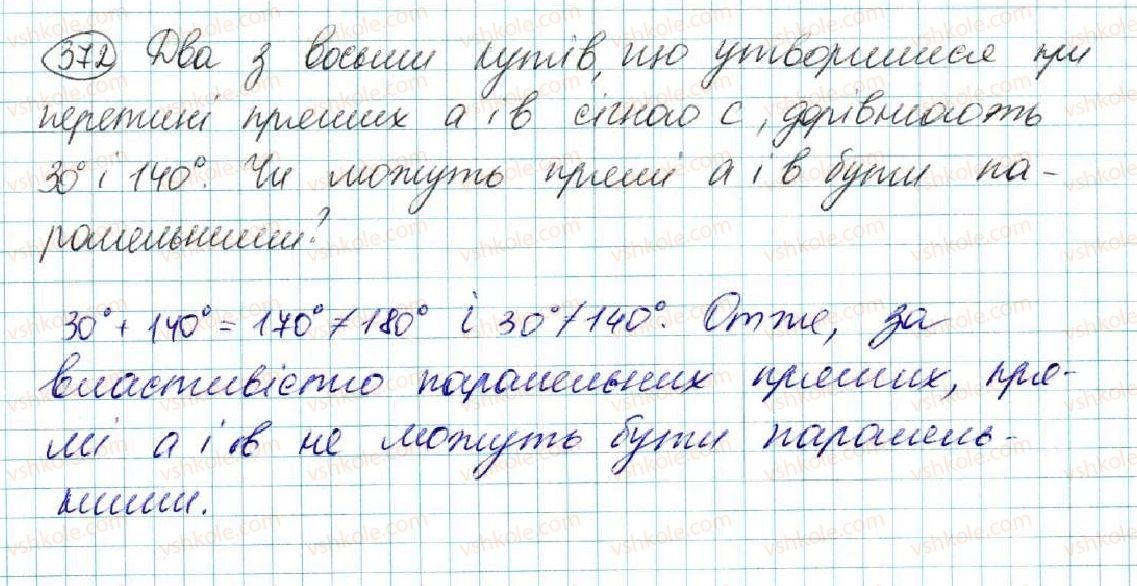 372 Два з восьми кутів, що утворилися при
перетині прямих a і b січною c, дорівнюють
30° і 140°. Чи можуть прямі a і b бути па-
ралельними?
30° + 140° = 170° ≠ 180° і 30° ≠ 140°. Отже, за
властивістю паралельних прямих, пря-
мі a і b не можуть бути паралель-
ними.
vshkole.com